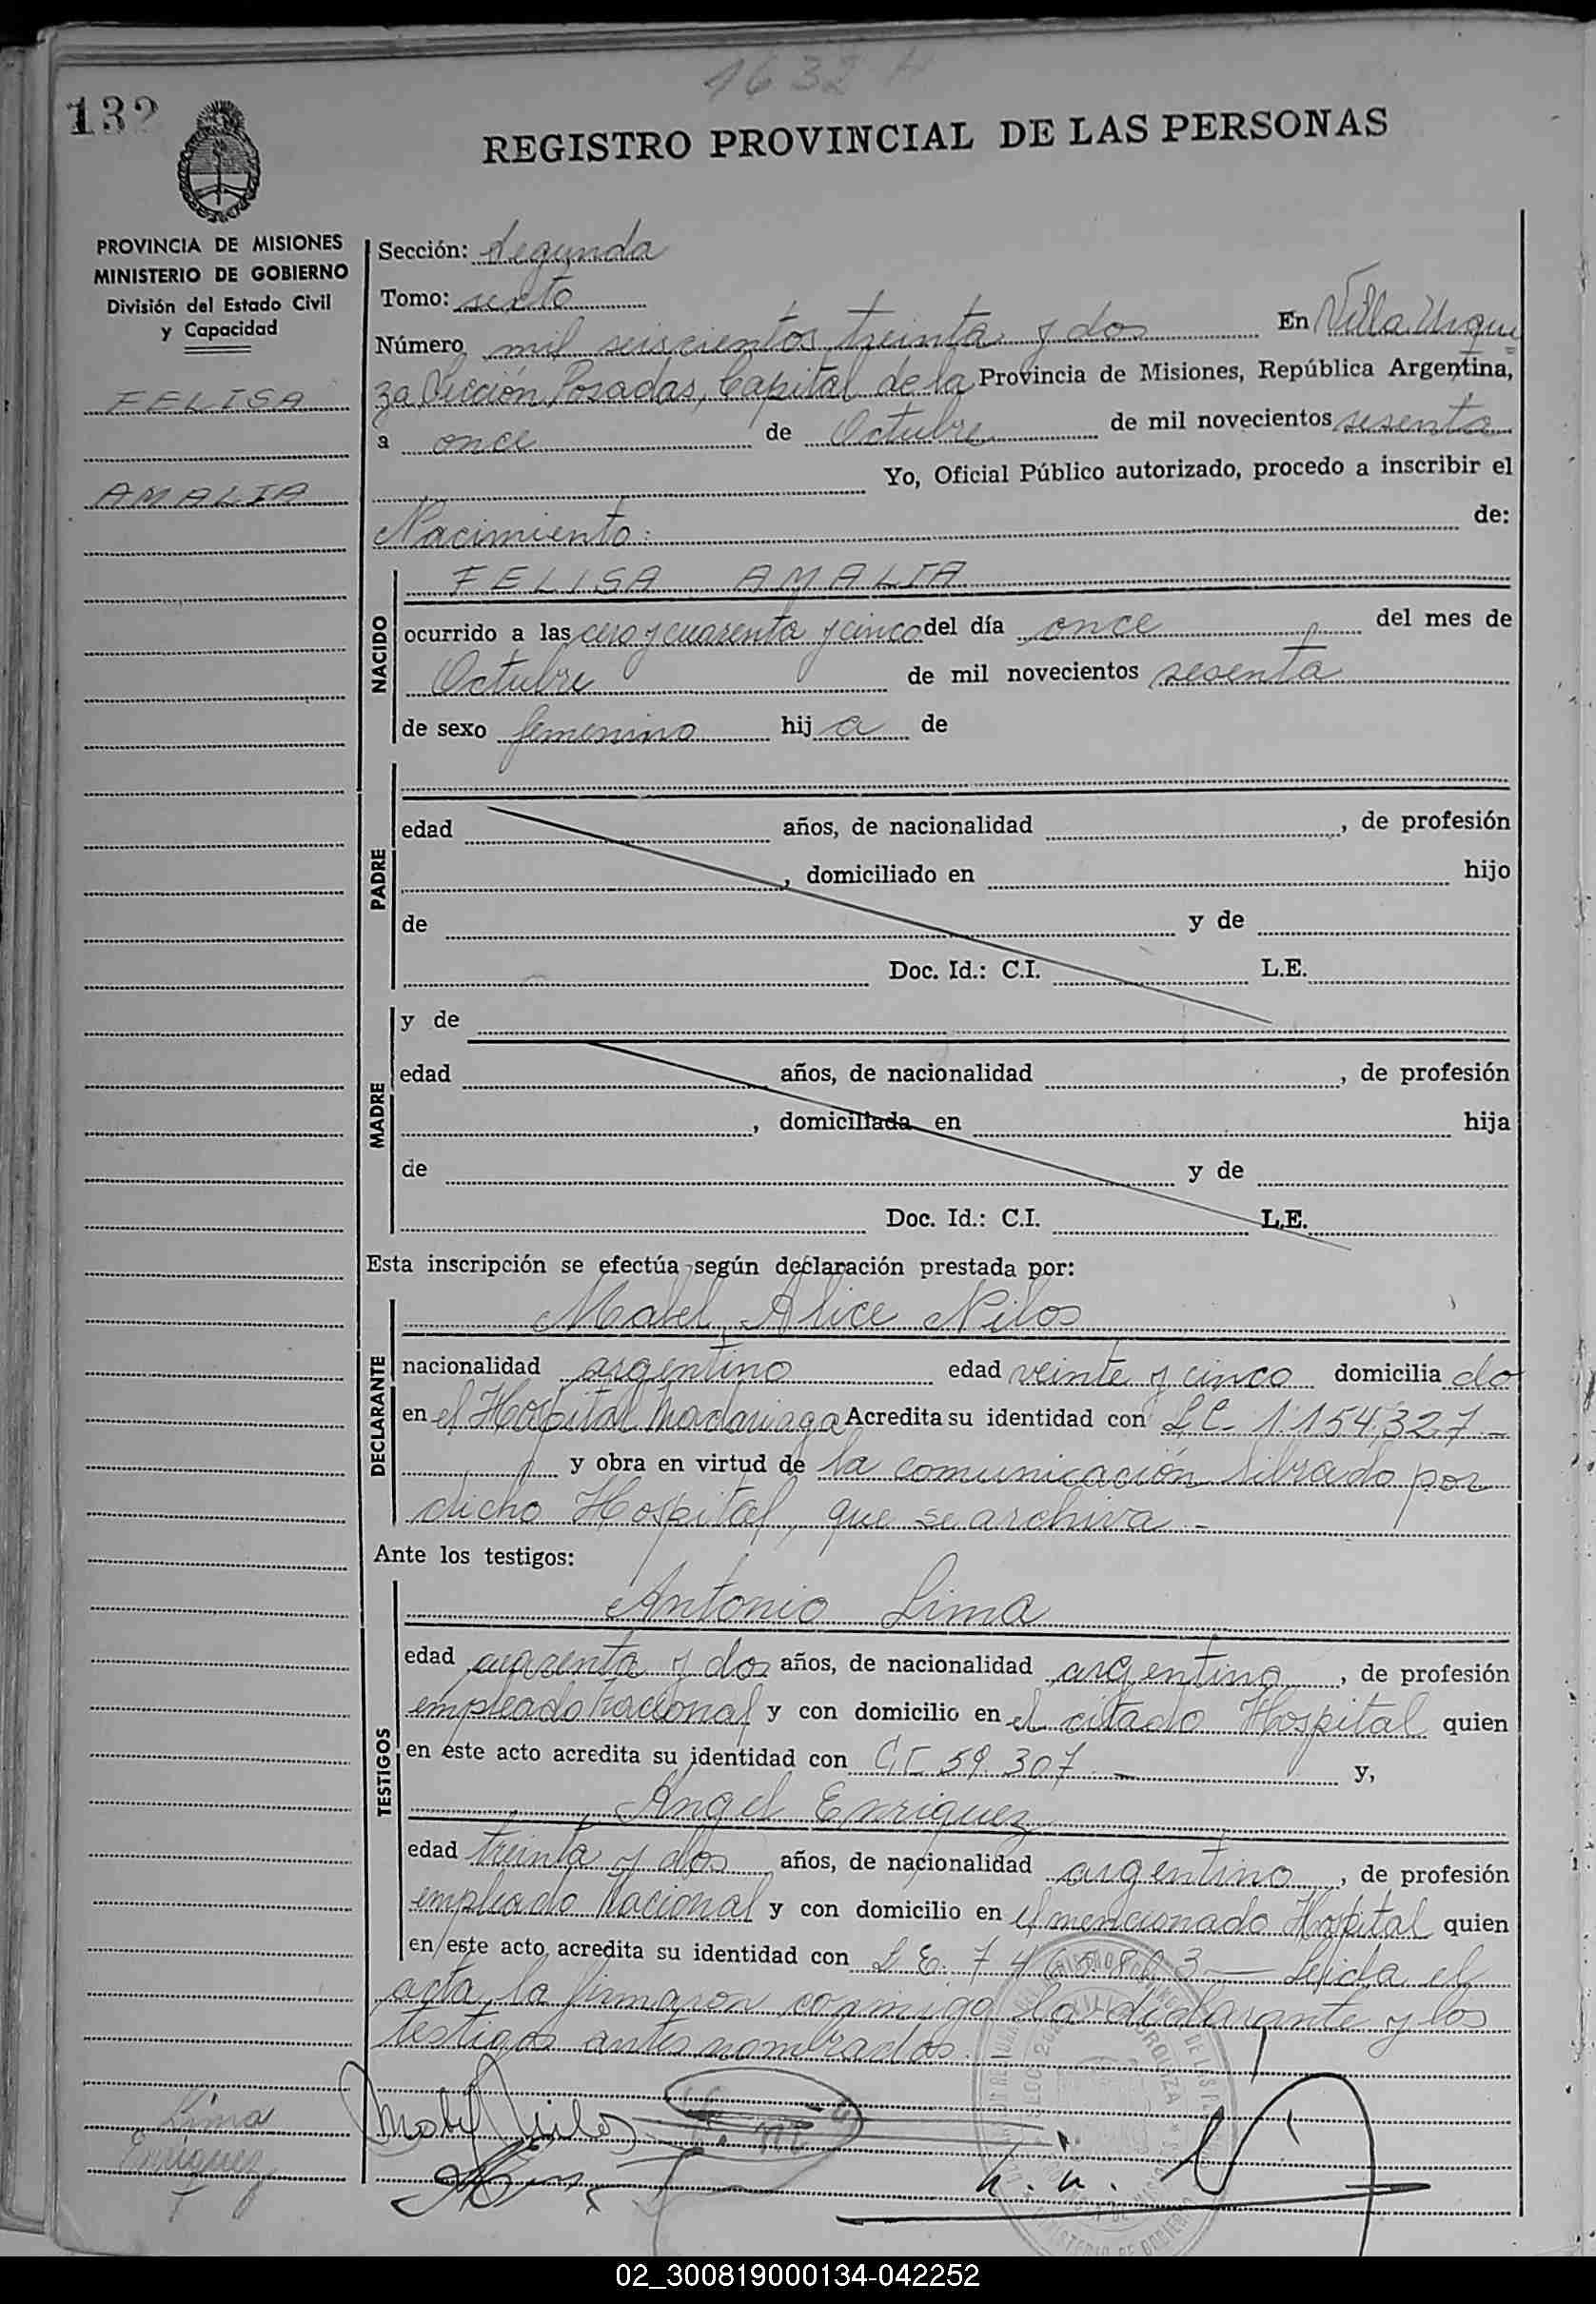 1632 H
132
REGISTRO PROVINCIAL DE LAS PERSONAS
PROVINCIA DE MISIONES
MINISTERIO DE GOBIERNO
División del Estado Civil
y Capacidad
FELISA
AMALIA
Sección: segunda
Tomo: sexto
Número mil seiscientos treinta y dos En Villa Urqui
za Sección Posadas, Capital de la Provincia de Misiones, República Argentina,
a once de Octubre de mil novecientos sesenta
Yo, Oficial Público autorizado, procedo a inscribir el
Nacimiento: de:
NACIDO
FELISA AMALIA
ocurrido a las cero y cuarenta y cinco del día once del mes de
Octubre de mil novecientos sesenta
de sexo femenino hij a de
PADRE
edad años, de nacionalidad , de profesión
, domiciliado en hijo
de y de
Doc. Id.: C.I. L.E.
MADRE
y de
edad años, de nacionalidad , de profesión
, domiciliada en hija
de y de
Doc. Id.: C.I. L.E.
Esta inscripción se efectúa según declaración prestada por:
DECLARANTE
Mabel Alice Nilos
nacionalidad argentino edad veinte y cinco domicilia do
en el Hospital Madariaga Acredita su identidad con L.C. 1.154.327.-
y obra en virtud de la comunicación librado por
dicho Hospital, que se archiva.-
Ante los testigos:
TESTIGOS
Antonio Lima
edad cuarenta y dos años, de nacionalidad argentino, de profesión
empleado Nacional y con domicilio en el citado Hospital quien
en este acto acredita su identidad con C.I. 59.307.— y,
Angel Enriquez
edad treinta y dos años, de nacionalidad argentino, de profesión
empleado Nacional y con domicilio en el mencionado Hospital quien
en este acto acredita su identidad con L.E. 7.463.803— Leída el
acta, la firmaron conmigo la declarante y los
testigos antes nombrados.
Lima
Enriquez
Mabel Nilos
02_300819000134-042252